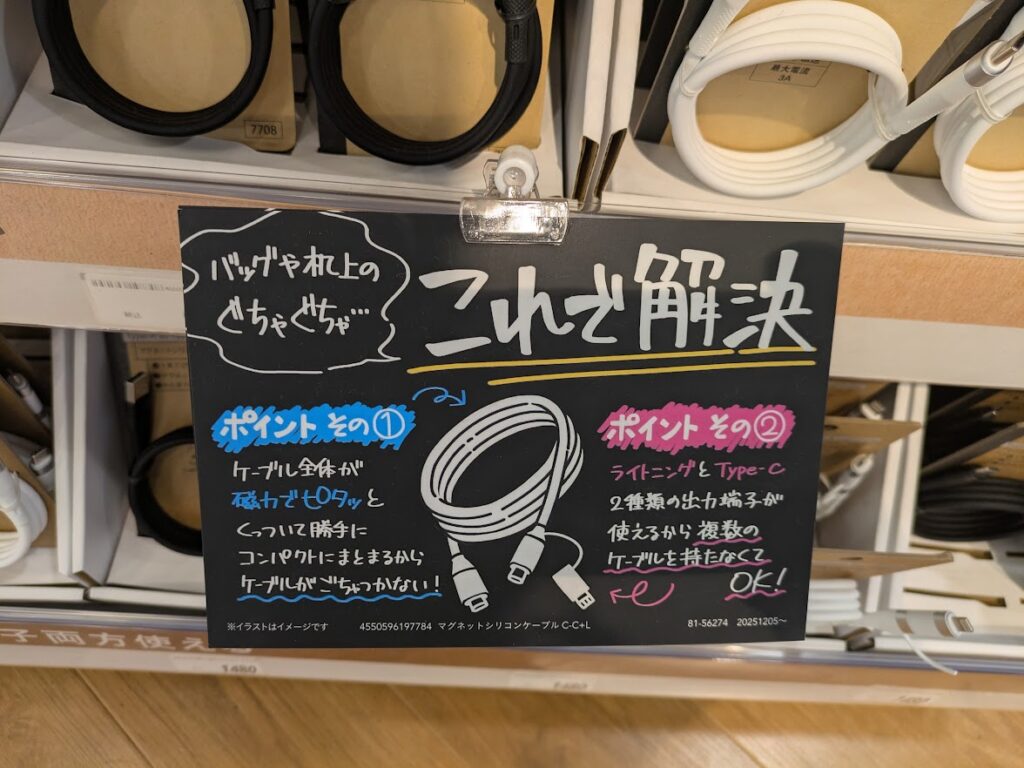 770B
最大電流
3A
バッグや机上の
ぐちゃぐちゃ…
これで解決
ポイント その①
ケーブル全体が
磁力でピタッと
くっついて勝手に
コンパクトにまとまるから
ケーブルがごちゃつかない!
ポイント その②
ライトニングとType-C
2種類の出力端子が
使えるから複数の
ケーブルを持たなくて
OK!
※イラストはイメージです 4550596197784 マグネットシリコンケーブル C-C+L 81-56274 20251205〜
子両方使える
1480